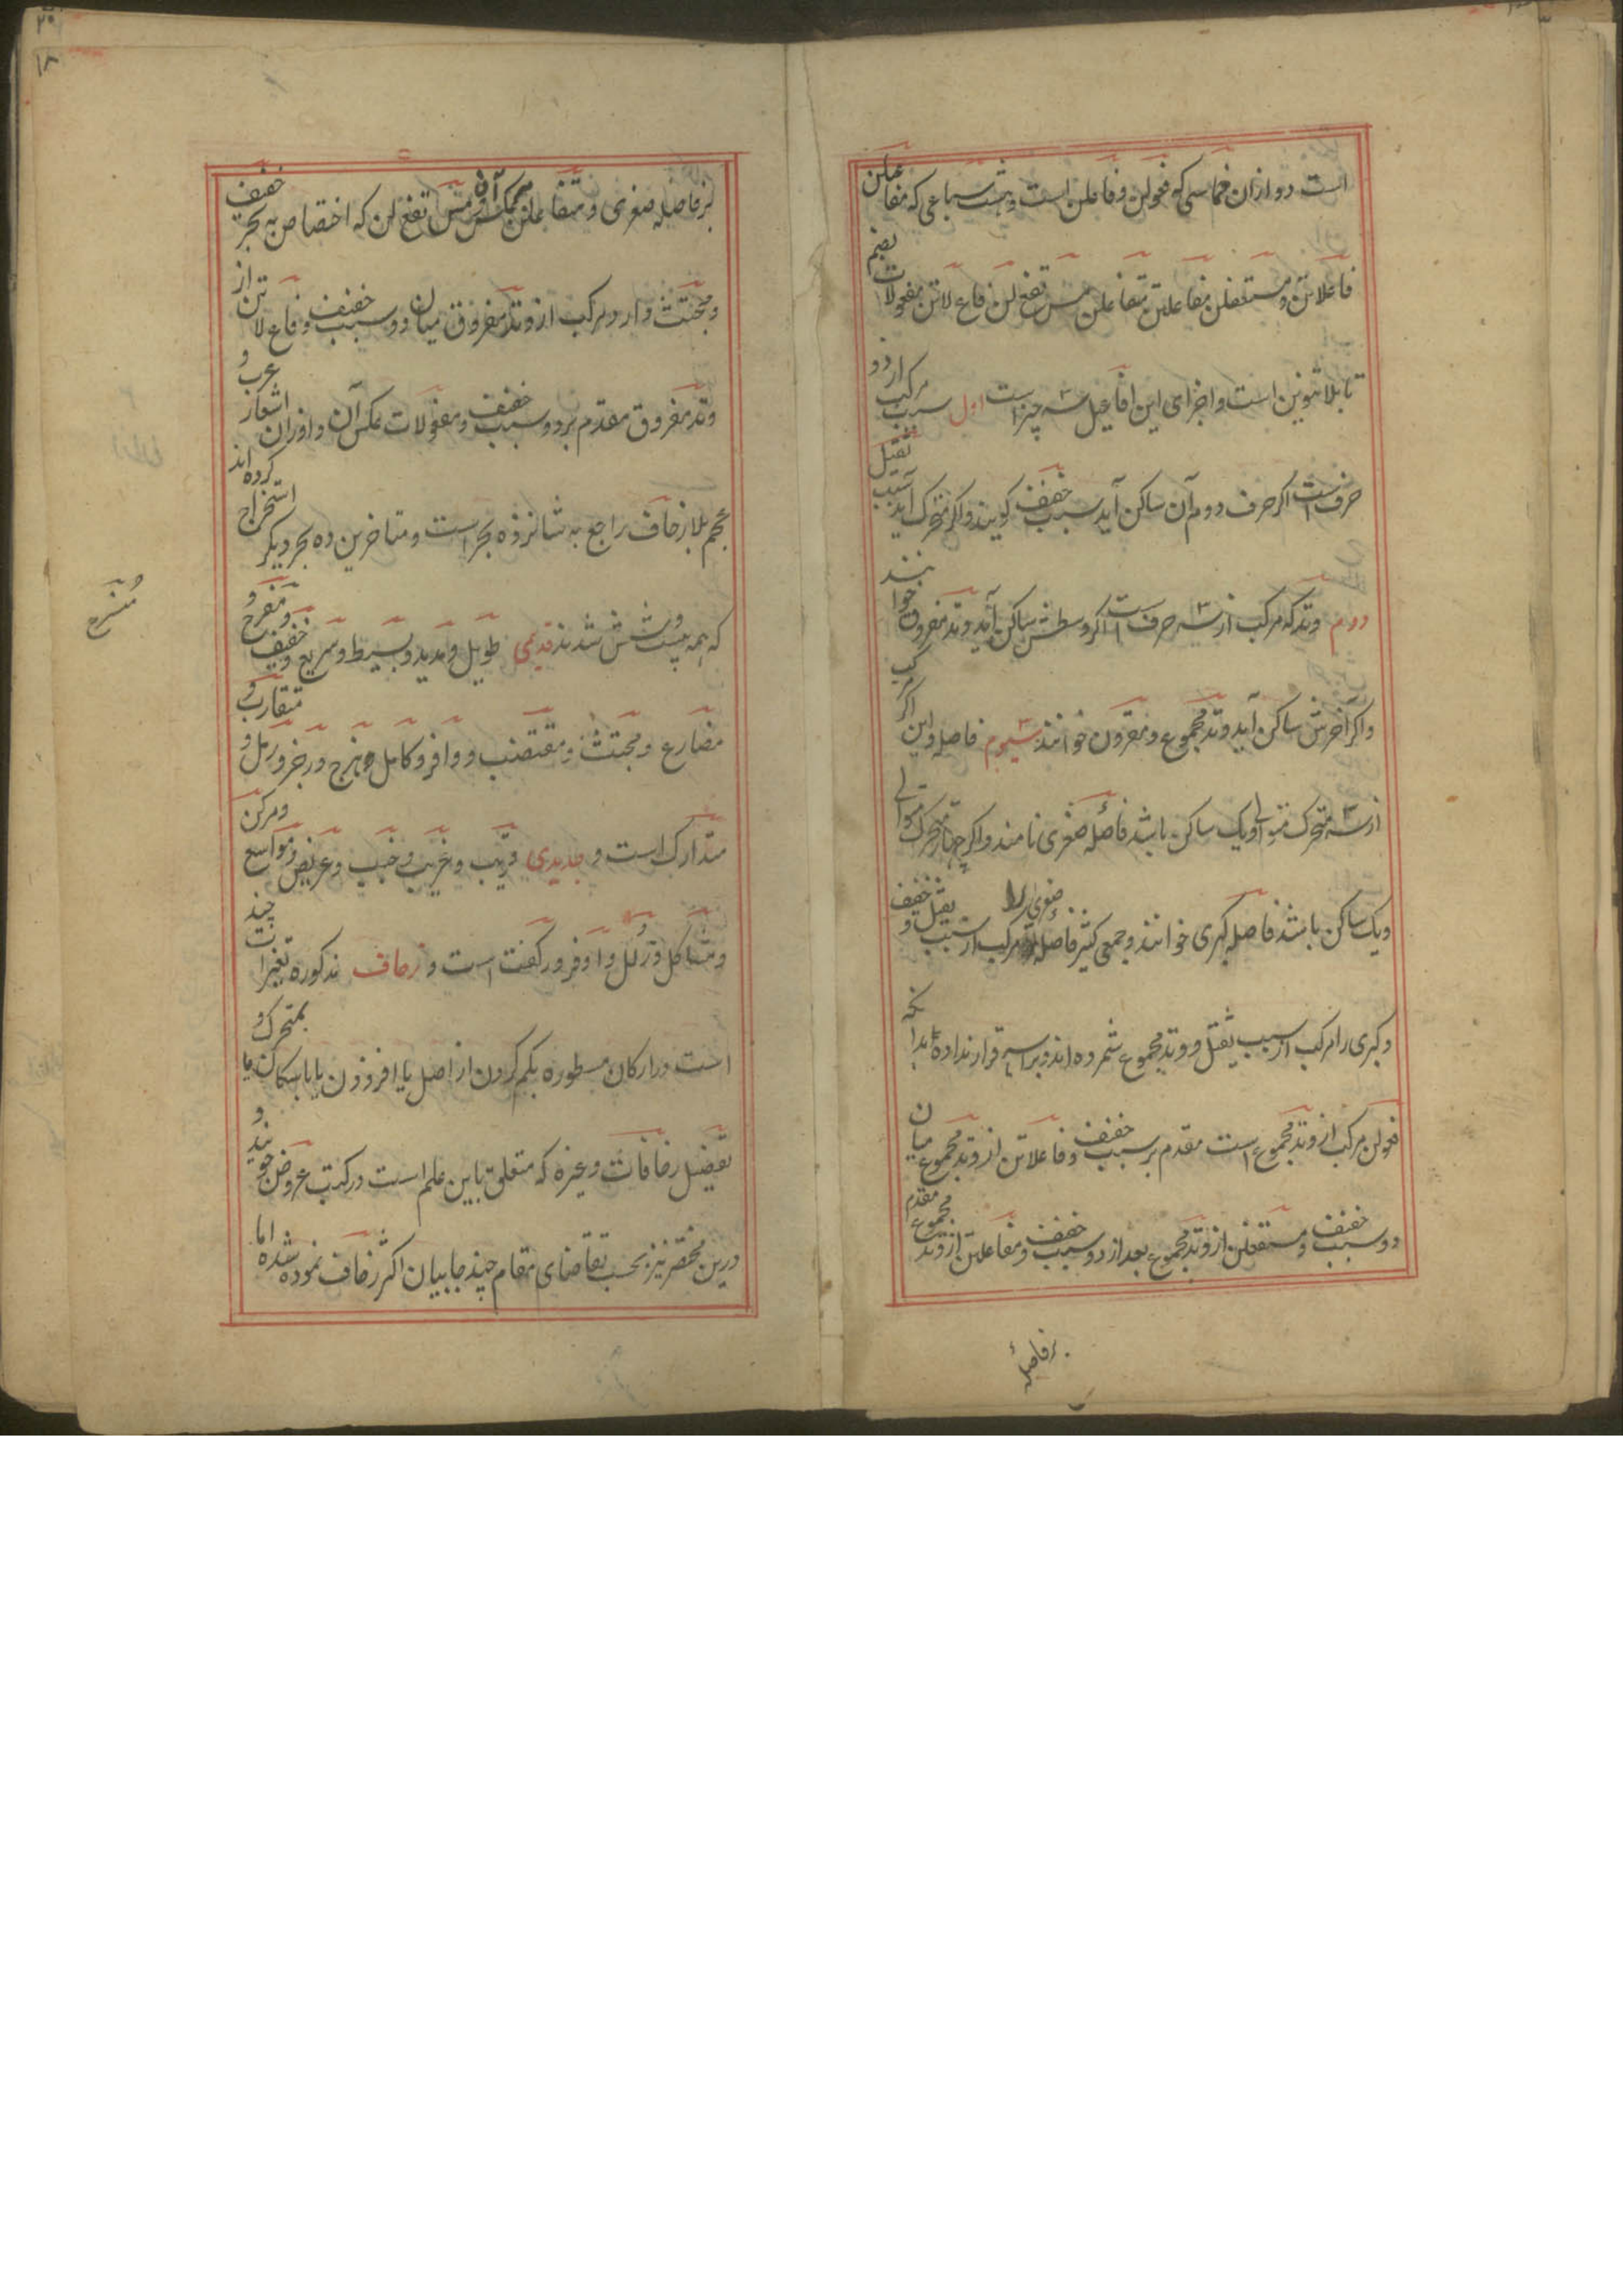 است دو ازان خماسی که فعولن و فاعلن است و هشت سباعی که مفاعلن
فاعلاتن و مستفعلن مفاعلتن متفاعلن مس تفع لن فاع لاتن مفعولات بضم
تا بلا تنوین است و اجزای این افاعیل سه چیز است اول سبب مرکب از دو
حرفست اگر حرف دوم آن ساکن آید سبب خفیف گویند و اگر متحرک آید سبب ثقیل
دوم وتد که مرکب از سه حرفست اگر وسطش ساکن آید وتد مفروق خوانند
و اگر آخرش ساکن آید وتد مجموع و مقرون خوانند سیوم فاصله و این اگر
از سه متحرک متوالی و یک ساکن باشد فاصلهٔ صغری نامند و اگر چهار متحرک متوالی
و یک ساکن باشد فاصله کبری خوانند و جمعی کثیر فاصله صغری را مرکب از سبب ثقیل و خفیف
و کبری را مرکب از سبب ثقیل و وتد مجموع شمرده اند و براسه قرار نداده اند
فعولن مرکب از وتد مجموع است مقدم بر سبب خفیف و فاعلاتن از وتد مجموع میان
دو سبب خفیف و مستفعلن از وتد مجموع بعد از دو سبب خفیف و مفاعلتن از وتد مجموع مقدم
بر فاصلهٔ
۱۸
بر فاصله صغری و متفاعلن عکس آن و مس تفع لن که اختصاص به بحر خفیف
و مجتث دارد مرکب از وتد مفروق میان دو سبب خفیف و فاع لاتن از
وتد مفروق مقدم بر دو سبب خفیف و مفعولات عکس آن و اوزان اشعار عرب و
عجم بلا زحاف راجع به شانزده بحر است و متاخرین ده بحر دیگر استخراج کرده اند
که همه بیست و شش شدند قدیمی طویل و مدید و بسیط و سریع و خفیف و منفرح و
مضارع و مجتث و مقتضب و وافر و کامل و هزج و رجز و رمل و متقارب و
متدارک است و جدیدی قریب و غریب و خبب و عریض و مواسع و مرکن
و متشاکل و زلل و اوفر و رکفت است و زحاف مذکوره تغیرات چند
است در ارکان مسطوره بکم کردن از اصل یا افزودن یا باسکان یا بمتحرک و
تفصیل زحافات و غیره که متعلق باین علم است در کتب عروض جویند و
درین مختصر نیز بحسب تقاضای مقام چند جا بیان اکثر زحاف نموده شده اما
منسرح